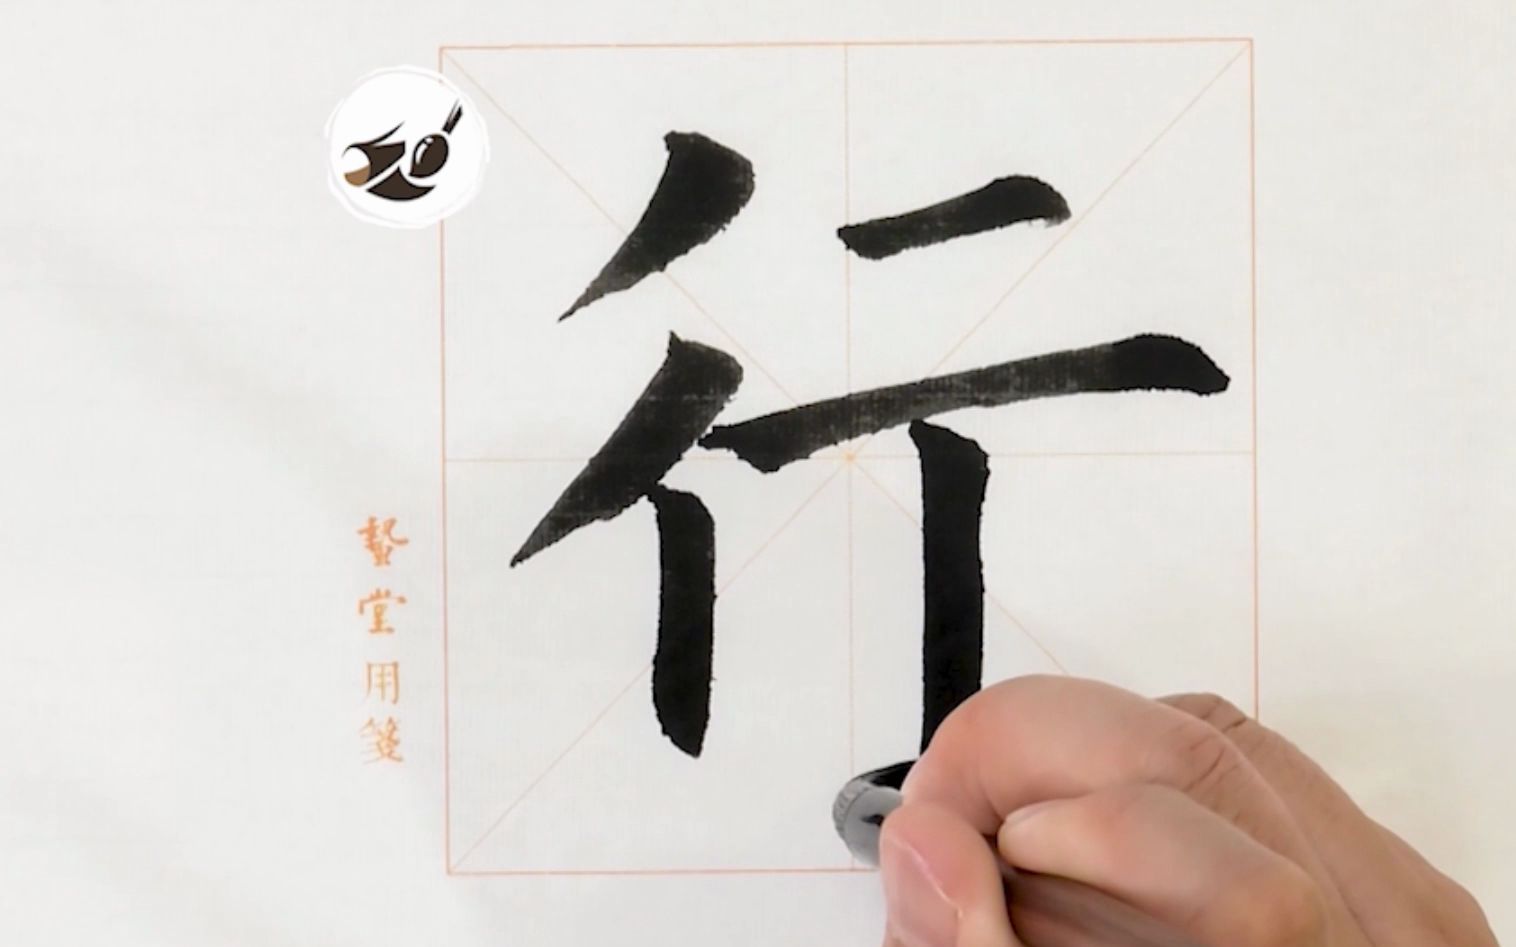 行
蟄堂用箋